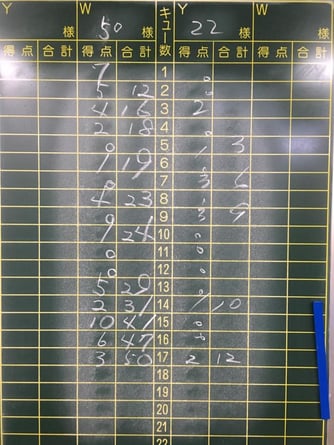 Y W キュー数 Y W
50様 22様
得点 合計 得点 合計 得点 合計 得点 合計
7 1 0
5 12 2 0
4 16 3 2
2 18 4 0
0 5 1 3
1 19 6
0 7 3 6
4 23 8 1
9 3 9
24 10 0
0 11 0
0 12 0
5 29 13 0
2 31 14 1 10
10 41 15 0
6 47 16 0
3 50 17 2 12
18
19
20
21
22